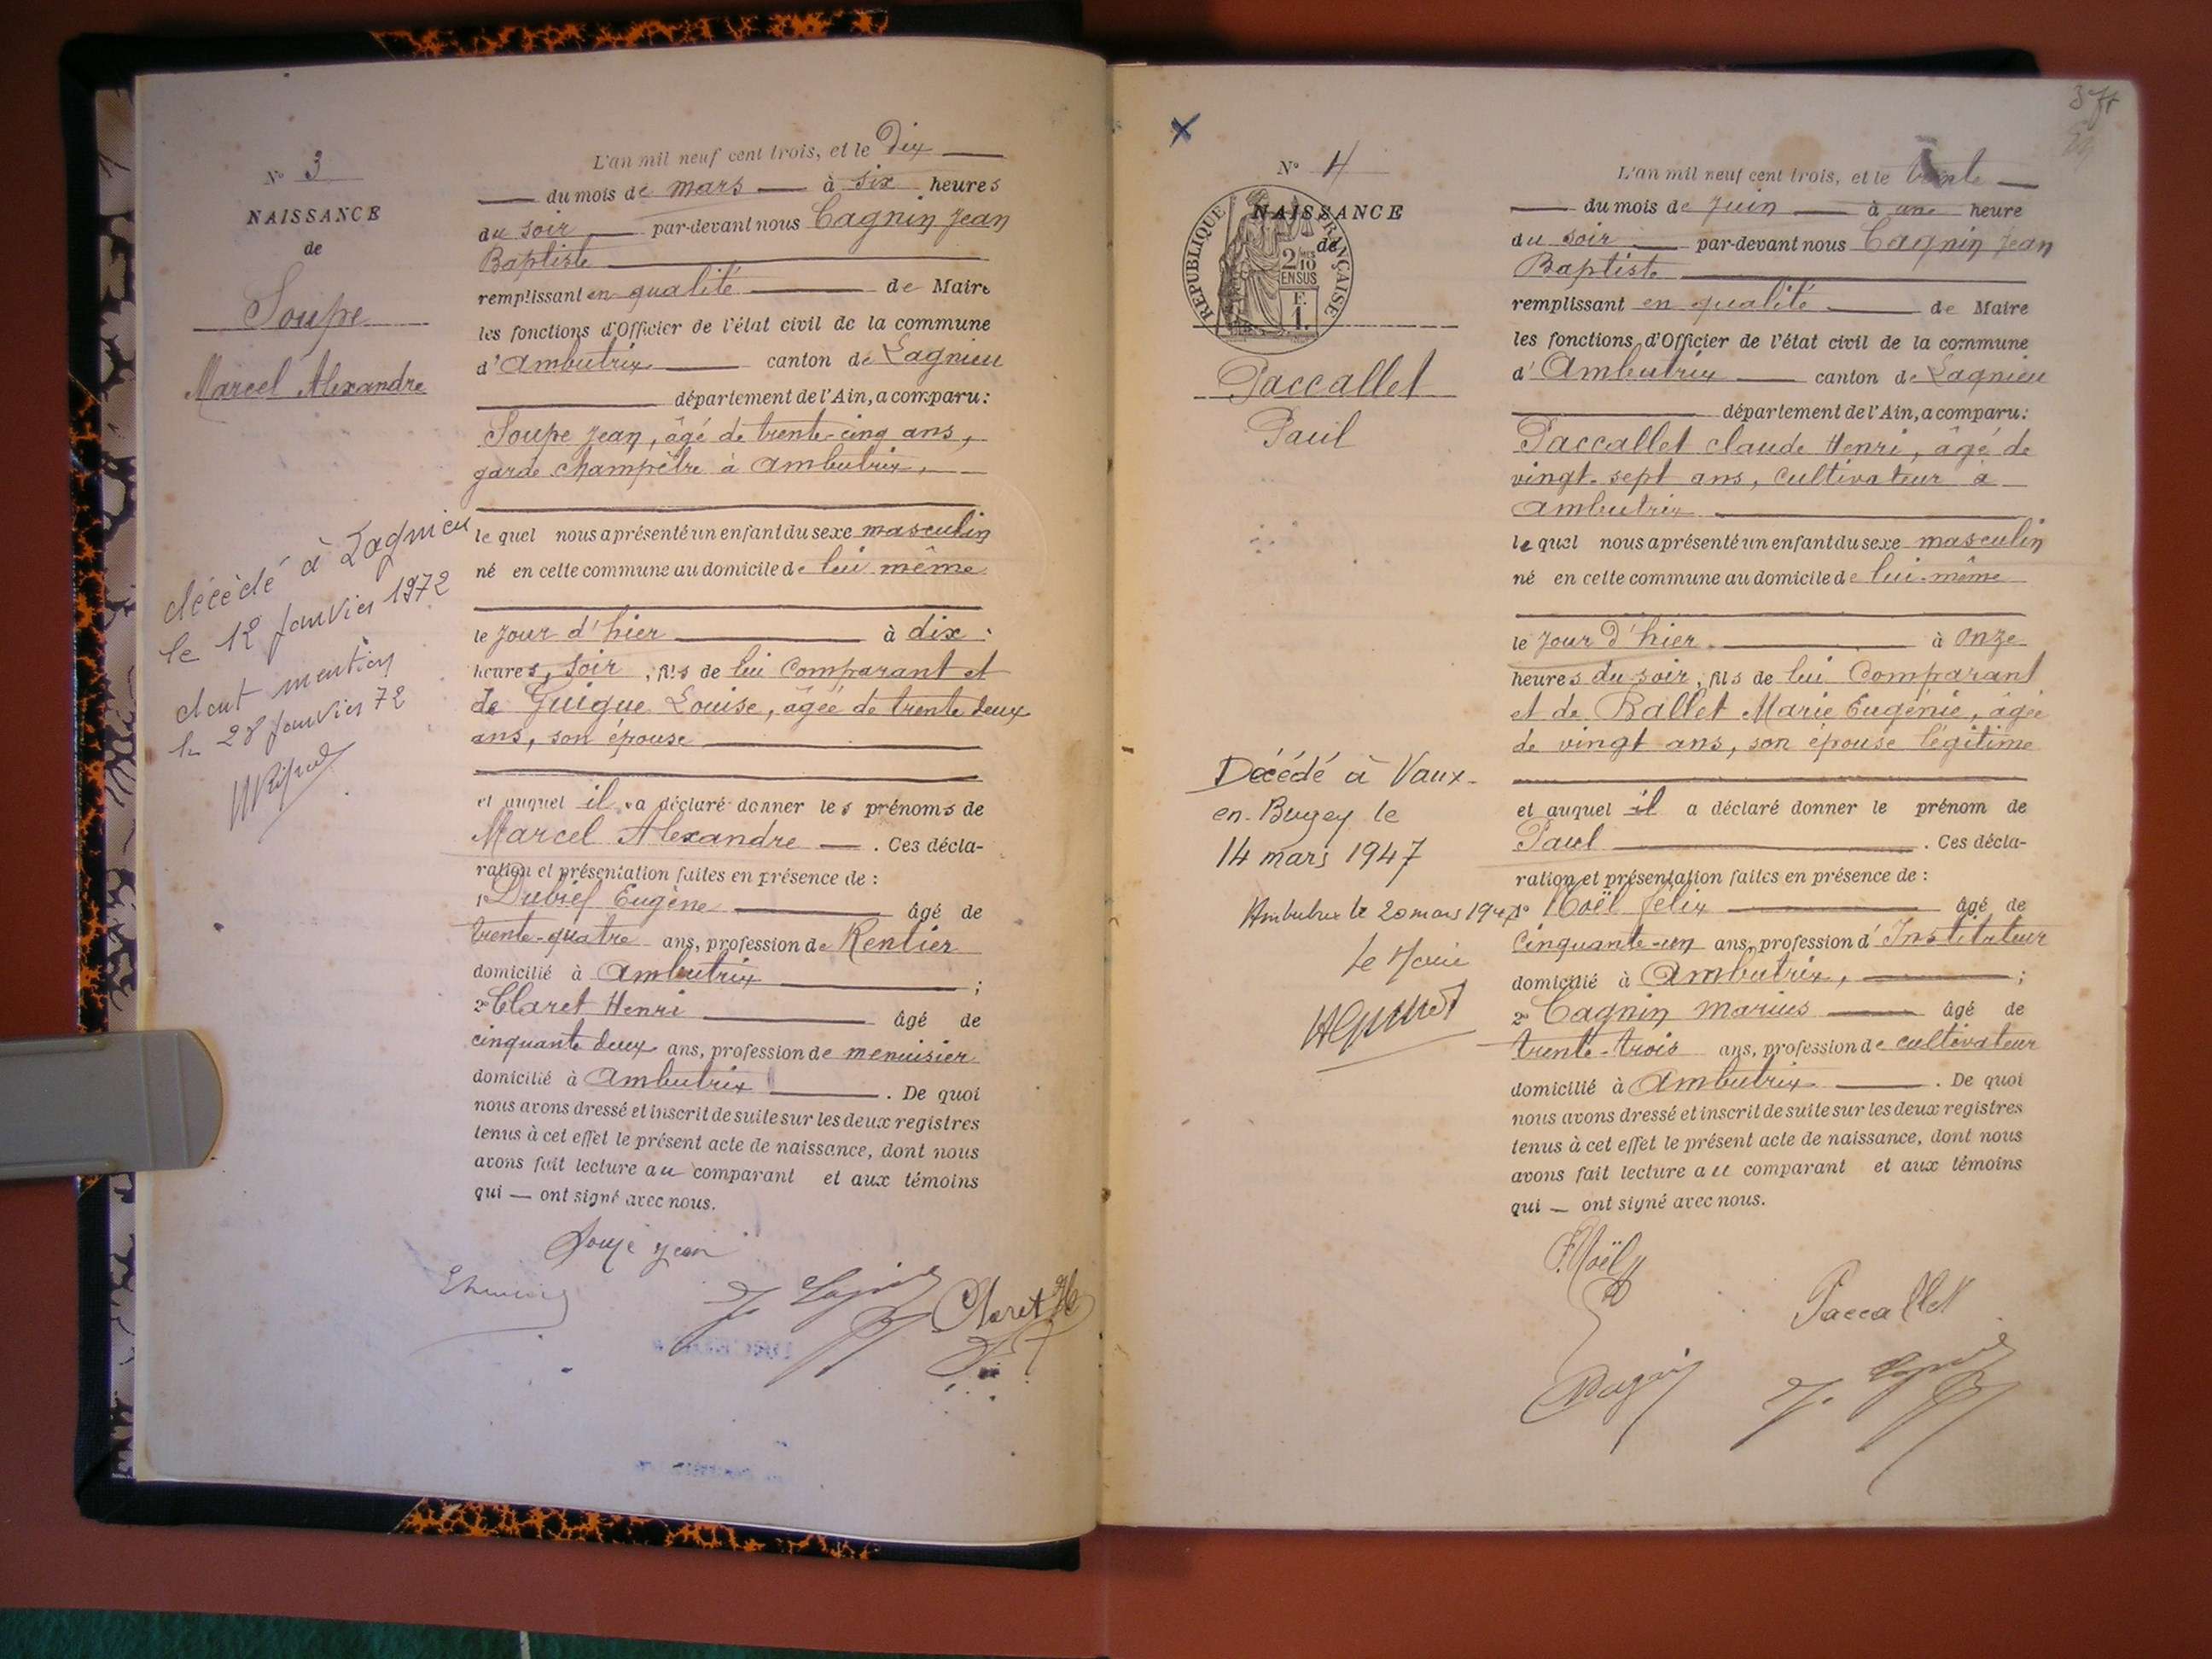 N° 3
NAISSANCE
de
Soupe
Marcel Alexandre
décédé à Lagnieu
le 12 janvier 1972
dont mention
le 28 janvier 72
L'an mil neuf cent trois, et le Dix
du mois de mars à six heures
du soir par-devant nous Cagnin Jean
Baptiste
remplissant en qualité de Maire
les fonctions d'Officier de l'état civil de la commune
d'Ambutrix canton de Lagnieu
département de l'Ain, a comparu :
Soupe Jean, âgé de trente-cinq ans,
garde champêtre à Ambutrix,
le quel nous a présenté un enfant du sexe masculin
né en cette commune au domicile de lui même
le jour d'hier à dix
heures, soir, fils de lui Comparant et
de Guigue Louise, âgée de trente deux
ans, son épouse
et auquel il a déclaré donner les prénoms de
Marcel Alexandre . Ces décla-
ration et présentation faites en présence de :
1° Dubief Eugène âgé de
trente-quatre ans, profession de Rentier
domicilié à Ambutrix ;
2° Claret Henri âgé de
cinquante deux ans, profession de menuisier
domicilié à Ambutrix . De quoi
nous avons dressé et inscrit de suite sur les deux registres
tenus à cet effet le présent acte de naissance, dont nous
avons fait lecture au comparant et aux témoins
qui — ont signé avec nous.
Soupe Jean
Claret H
N° 4
NAISSANCE
de
REPUBLIQUE FRANÇAISE
2/10
EN SUS
F.
1.
Paccallet
Paul
Décédé à Vaux-
en-Bugey le
14 mars 1947
Ambutrix le 20 mars 1947
le Maire
L'an mil neuf cent trois, et le trente
du mois de Juin à une heure
du soir par-devant nous Cagnin Jean
Baptiste
remplissant en qualité de Maire
les fonctions d'Officier de l'état civil de la commune
d'Ambutrix canton de Lagnieu
département de l'Ain, a comparu :
Paccallet claude Henri, âgé de
vingt-sept ans, Cultivateur à
Ambutrix
le quel nous a présenté un enfant du sexe masculin
né en cette commune au domicile de lui-même
le jour d'hier à onze
heures du soir, fils de lui Comparant
et de Ballet Marie Eugénie, âgée
de vingt ans, son épouse légitime
et auquel il a déclaré donner le prénom de
Paul . Ces décla-
ration et présentation faites en présence de :
1° Noël Félix âgé de
Cinquante-un ans, profession d'Instituteur
domicilié à Ambutrix, ;
2° Cagnin Marius âgé de
trente-trois ans, profession de cultivateur
domicilié à Ambutrix . De quoi
nous avons dressé et inscrit de suite sur les deux registres
tenus à cet effet le présent acte de naissance, dont nous
avons fait lecture au comparant et aux témoins
qui — ont signé avec nous.
F. Noël
Paccallet